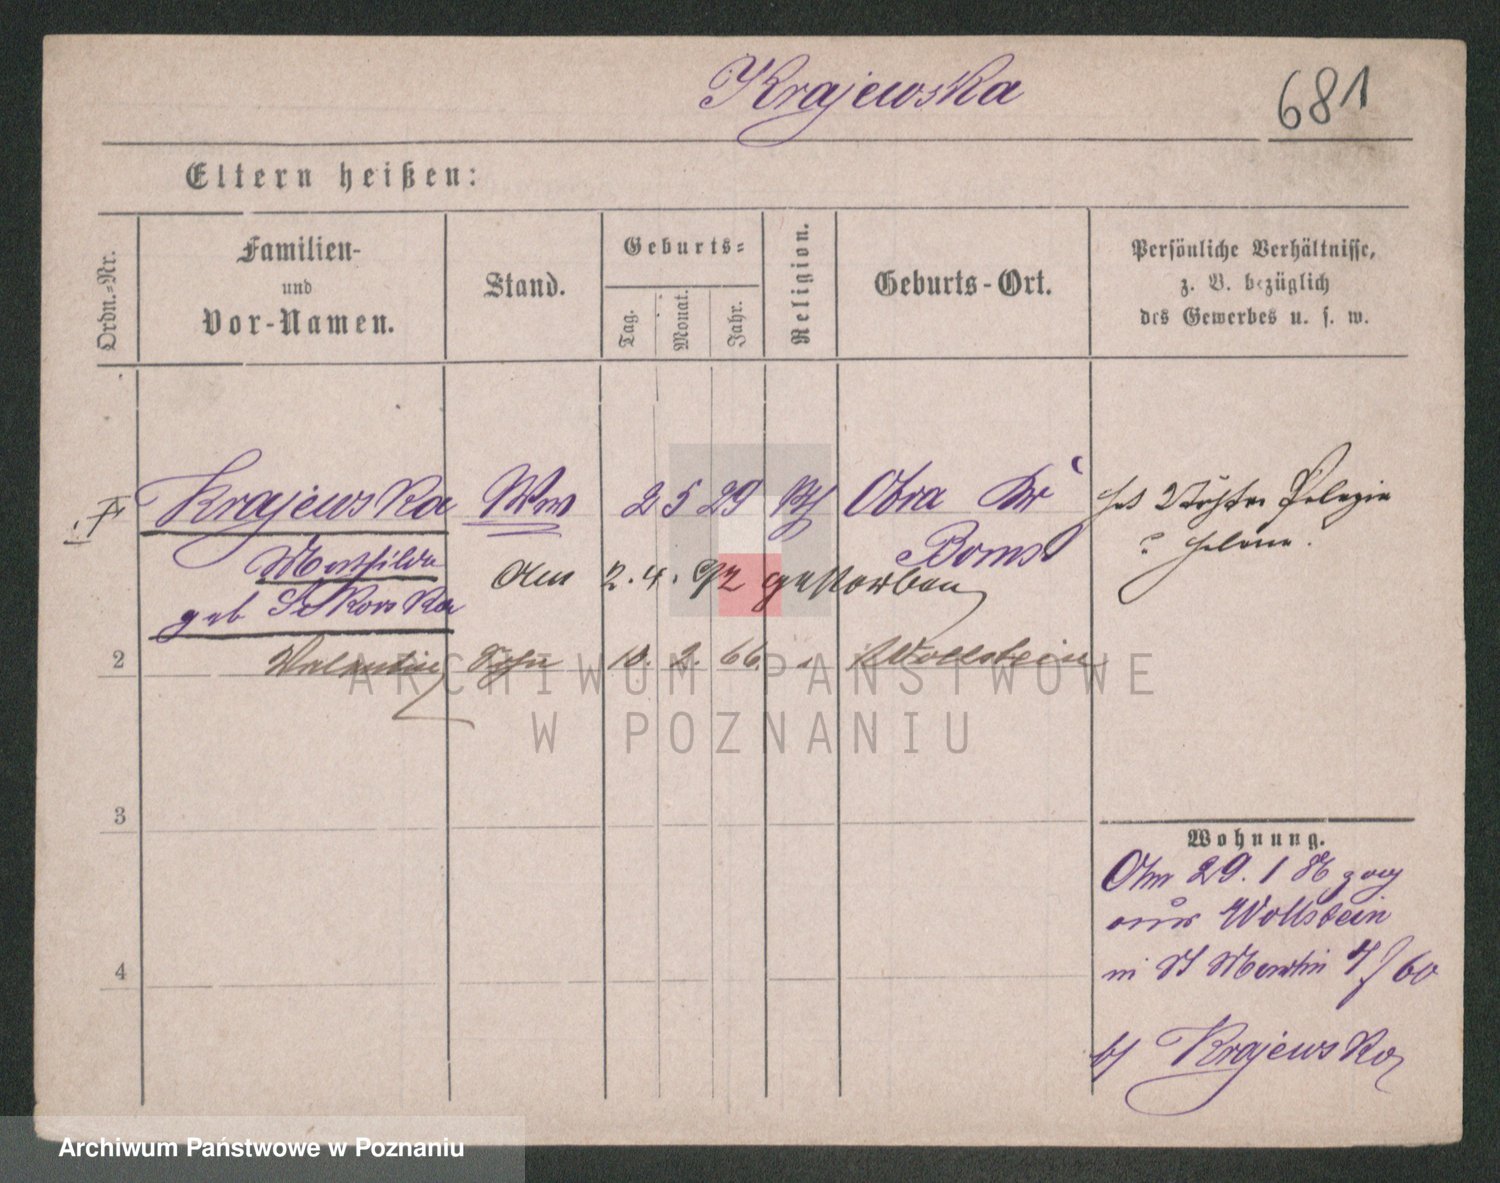 Krajewska
681
Eltern heißen:
Ordn.=Nr.
Familien-
und
Vor-Namen.
Stand.
Geburts=
Tag.
Monat.
Jahr.
Religion.
Geburts-Ort.
Persönliche Verhältnisse,
z. B. bezüglich
des Gewerbes u. s. w.
Krajewska Ww 2 5 29 Obra Kr
Bomst
Mathilda
geb Sikorska
am 2. 4. 92 gestorben
Tochter Pelagia
2 Valentin Sohn 10. 2. 66. Wollstein
3
4
Wohnung.
Am 29. 1 86 zog
aus Wollstein
in St Martin 4/60
b/ Krajewska
ARCHIWUM PAŃSTWOWE
W POZNANIU
Archiwum Państwowe w Poznaniu